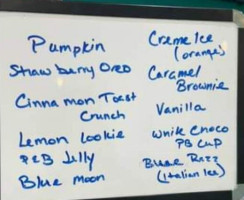 Pumpkin
Strawbarry Oreo
Cinnamon Toast
Crunch
Lemon Cookie
PBB Jelly
Blue Moon
Creme Ice
(orange)
Caramel
Brownie
Vanilla
White Choco
PB Cup
Blue Razz
(Italian Ice)